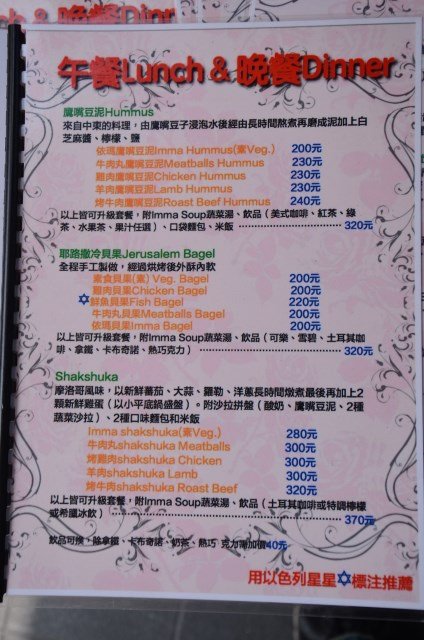 午餐Lunch & 晚餐Dinner
鷹嘴豆泥Hummus
來自中東的料理，由鷹嘴豆子浸泡水後經由長時間熬煮再磨成泥加上白
芝麻醬、檸檬、鹽
依瑪鷹嘴豆泥Imma Hummus(素Veg.) 200元
牛肉丸鷹嘴豆泥Meatballs Hummus 230元
雞肉鷹嘴豆泥Chicken Hummus 230元
羊肉鷹嘴豆泥Lamb Hummus 230元
烤牛肉鷹嘴豆泥Roast Beef Hummus 240元
以上皆可升級套餐，附Imma Soup蔬菜湯、飲品（美式咖啡、紅茶、綠
茶、水果茶、果汁任選）、口袋麵包、米飯 320元
耶路撒冷貝果Jerusalem Bagel
全程手工製做，經過烘烤後外酥內軟
素食貝果(素) Veg. Bagel 200元
雞肉貝果Chicken Bagel 200元
✡鮮魚貝果Fish Bagel 220元
牛肉丸貝果Meatballs Bagel 200元
依瑪貝果Imma Bagel 200元
以上皆可升級套餐，附Imma Soup蔬菜湯、飲品（可樂、雪碧、土耳其咖
啡、拿鐵、卡布奇諾、熱巧克力） 320元
Shakshuka
摩洛哥風味，以新鮮蕃茄、大蒜、羅勒、洋蔥長時間燉煮最後再加上2
顆新鮮雞蛋（以小平底鍋盛盤）。附沙拉拼盤（酸奶、鷹嘴豆泥、2種
蔬菜沙拉）、2種口味麵包和米飯
Imma shakshuka(素Veg.) 280元
牛肉丸shakshuka Meatballs 300元
烤雞肉shakshuka Chicken 300元
羊肉shakshuka Lamb 300元
烤牛肉shakshuka Roast Beef 320元
以上皆可升級套餐，附Imma Soup蔬菜湯、飲品（土耳其咖啡或特調檸檬
或希臘冰飲） 370元
飲品可換，除拿鐵、卡布奇諾、奶茶、熱巧 克力需加價40元
用以色列星星✡標注推薦